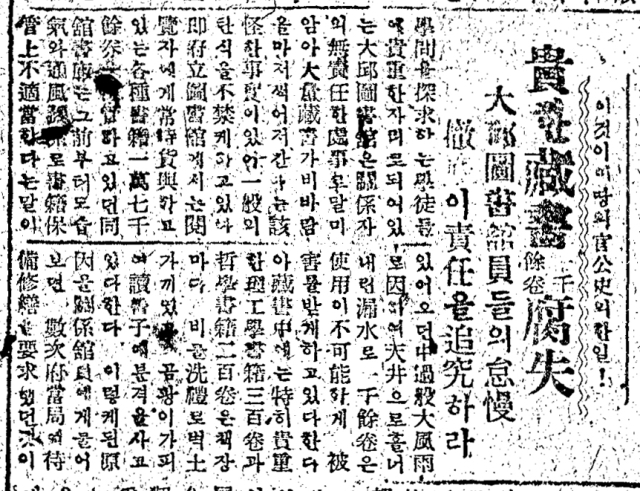 이것이 이 땅의 官公吏의 한일!
貴重藏書千餘卷腐失
大邱圖書館員들의 怠慢
이 責任을 追究하라
學問을 探求하는 學徒들
에 貴重한 자미로 되여 있
는 大邱圖書館은 關係자
의 無責任한 處事로 말미
암아 大量藏書가 비바람
을 마저 썩어저간다는 該
怪한 事度이 있어 一般의
탄식을 不禁케하고 있다
即 府立圖書館에서는 閱
覽자에게 常時貸與하고
있는 各種書籍一萬七千
餘卷 하고 있던 同
館書庫는 그 前부터도 
氣와 通風 로 書籍保
管上 不適當한다는 말이
있어 오던 中 過般 大風雨
로 因하여 天井으로 흘너
내린 漏水로 一千餘卷은
使用이 不可能하게 被
害를 받게하고 있다 한다
아 藏書中에는 特히 貴重
한 理工學書籍三百卷과
哲學書籍二百卷은 책장
마다 비를 洗禮로 벽土
가 끼있 곰팡이가 피
여 讀書子에 분격을 사고
있다 한다 이렇게 된 原
因을 關係館員에게 물어
보면 數次 府當局에 待
備修繕을 要求했던 것이